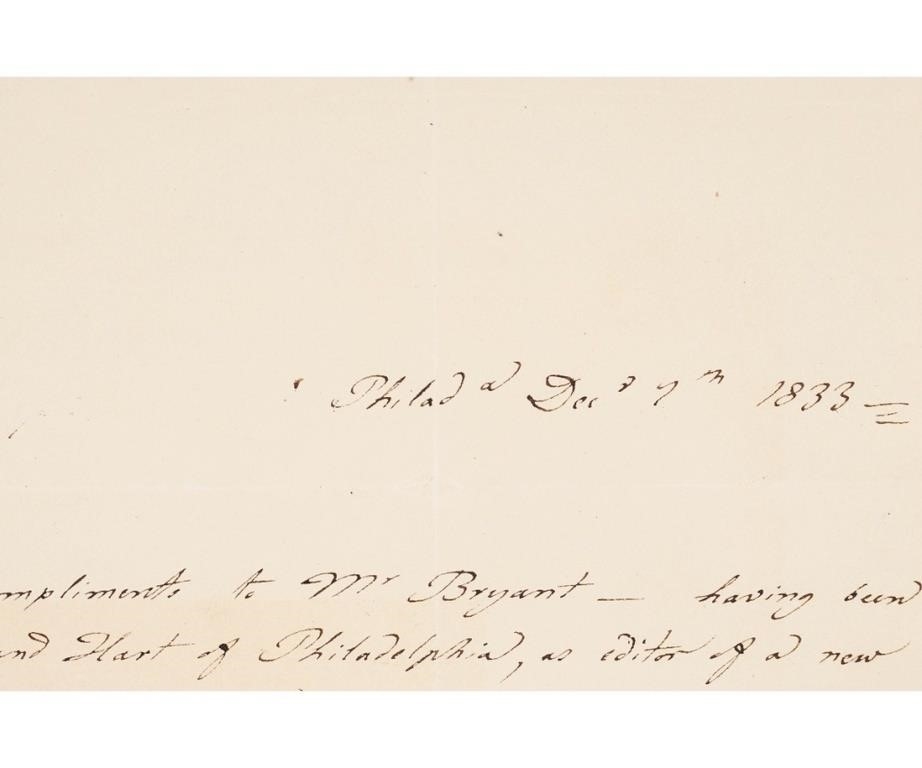 Philadᵃ Decʳ 7ᵗʰ 1833
mpliments to Mʳ Bryant — having been
and Hart of Philadelphia, as editor of a new